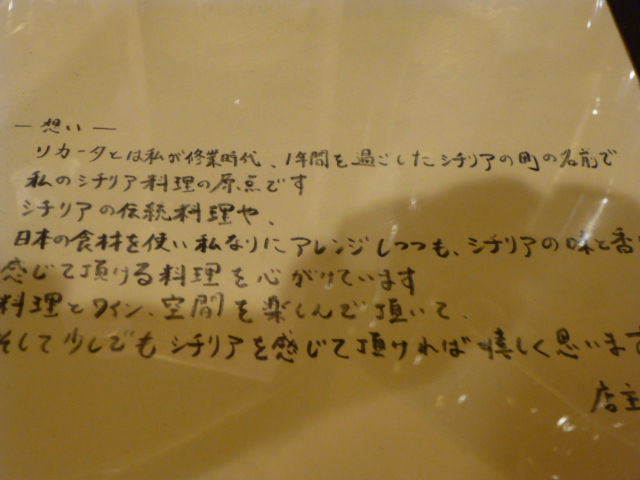 ― 想い ―
リカータとは私が修業時代、1年間を過ごしたシチリアの町の名前で
私のシチリア料理の原点です
シチリアの伝統料理や、
日本の食材を使い私なりにアレンジしつつも、シチリアの味と香り
感じて頂ける料理を心がけています
料理とワイン、空間を楽しんで頂いて、
そして少しでもシチリアを感じて頂ければ嬉しく思います
店主